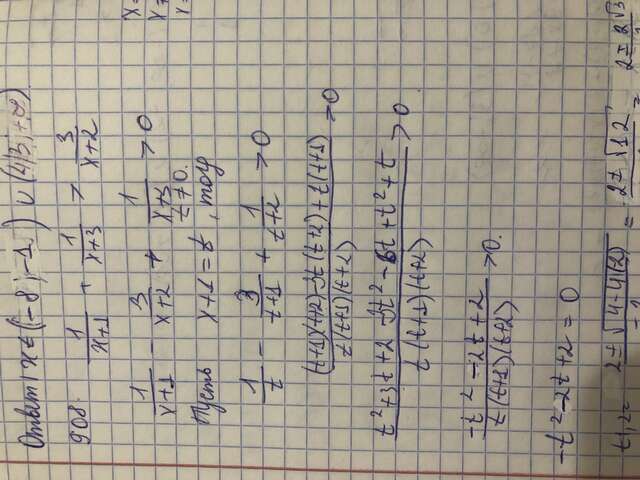 Ответ: x ∈ (-8; -1) ∪ (4/3; +∞)
908.
1/(x+1) + 1/(x+3) > 3/(x+2)
1/(x+1) - 3/(x+2) + 1/(x+3) > 0
t ≠ 0.
Пусть x+1 = t, тогд
1/t - 3/(t+1) + 1/(t+2) > 0
((t+1)(t+2) - 3t(t+2) + t(t+1))/(t(t+1)(t+2)) > 0
(t²+3t+2 - 3t² - 6t + t² + t)/(t(t+1)(t+2)) > 0
(-t² - 2t + 2)/(t(t+1)(t+2)) > 0.
-t² - 2t + 2 = 0